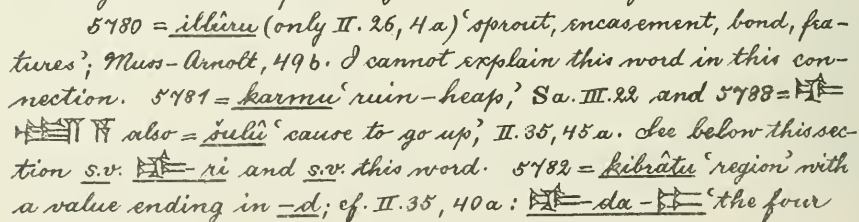 5780 = illûru (only II. 26, 4a) 'sprout, encasement, bond, fea-
tures'; Muss-Arnolt, 49b. I cannot explain this word in this con-
nection. 5781 = karmu 'ruin-heap,' Sa. III. 22 and 5788 =
also = šulû 'cause to go up,' II. 35, 45a. See below this sec-
tion s.v. -ri and s.v. this word. 5782 = kibrâtu 'region' with
a value ending in -d; cf. II. 35, 40a : -da- 'the four